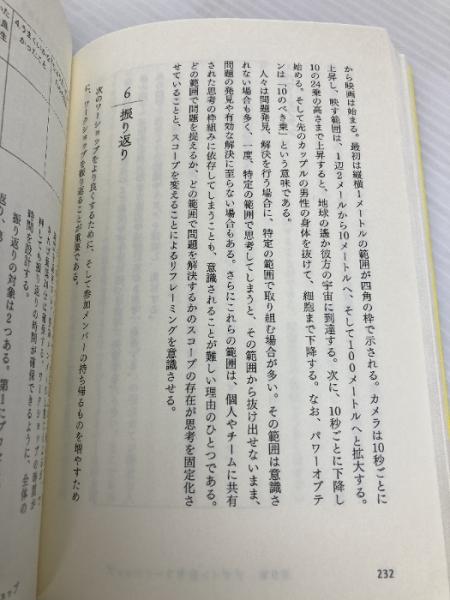 から映画は始まる。最初は縦横1メートルの範囲が四角の枠で示される。カメラは10秒ごとに
上昇し、映す範囲は、1辺2メールから10メートルへ、そして100メートルへと拡大する。
10の24乗の高さまで上昇すると、地球の遙か彼方の宇宙に到達する。次に、10秒ごとに下降し
始める。そして先のカップルの男性の身体を抜けて、細胞まで下降する。なお、パワーオブテ
ンは「10のべき乗」という意味である。
人々は問題発見、解決を行う場合に、特定の範囲で取り組む場合が多い。その範囲は意識さ
れない場合も多く、一度、特定の範囲で思考してしまうと、その範囲から抜け出せないまま、
問題の発見や有効な解決に至らない場合もある。さらにこれらの範囲は、個人やチームに共有
された思考の枠組みに依存してしまうことも、意識されることが難しい理由のひとつである。
どの範囲で問題を捉えるか、どの範囲で問題を解決するかのスコープの存在が思考を固定化さ
せていることと、スコープを変えることによるリフレーミングを意識させる。
6 振り返り
次のワークショップをより良くするために、そして参加メンバーの持ち帰るものを増やすため
に、ワークショップを振り返ることが重要である。
時間を設計する。
振り返りの対象は2つある。第1に
232